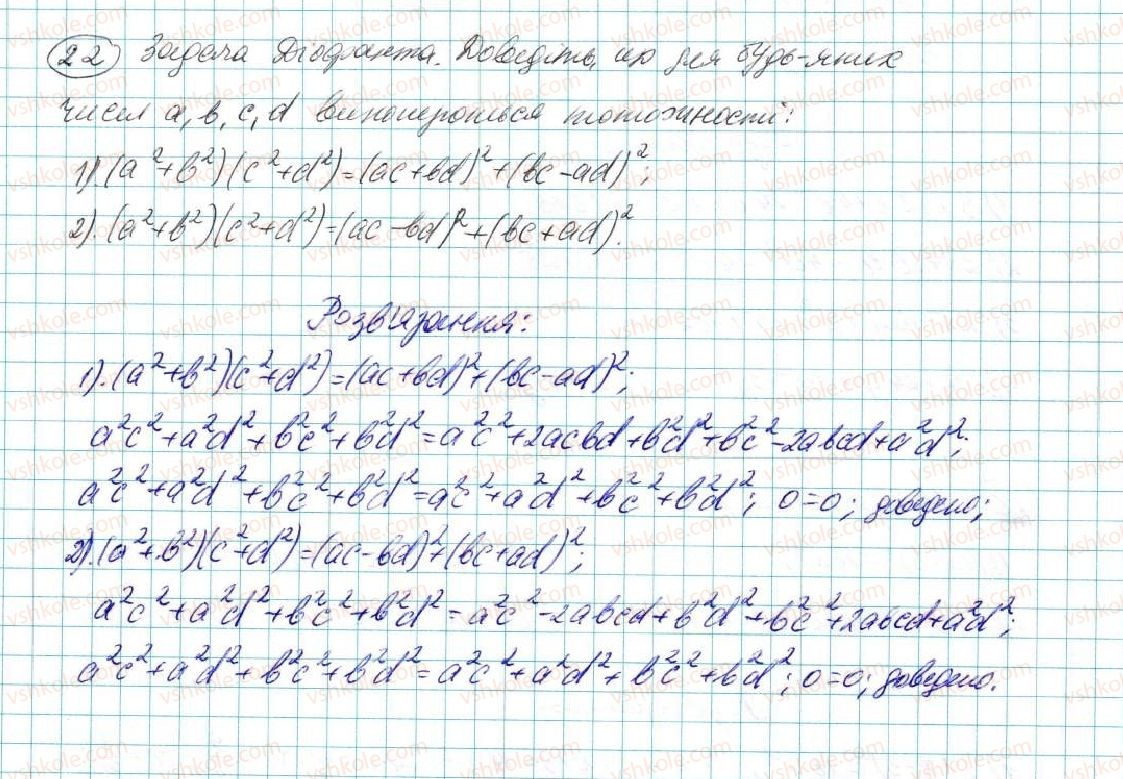 22 Задача Діофанта. Доведіть, що для будь-яких
чисел a, b, c, d виконуються тотожності:
1). (a²+b²)(c²+d²)=(ac+bd)²+(bc-ad)²;
2). (a²+b²)(c²+d²)=(ac-bd)²+(bc+ad)².
Розв'язання:
1). (a²+b²)(c²+d²)=(ac+bd)²+(bc-ad)²;
a²c²+a²d²+b²c²+b²d²=a²c²+2acbd+b²d²+b²c²-2abcd+a²d²;
a²c²+a²d²+b²c²+b²d²=a²c²+a²d²+b²c²+b²d²; 0=0; доведено;
2). (a²+b²)(c²+d²)=(ac-bd)²+(bc+ad)²;
a²c²+a²d²+b²c²+b²d²=a²c²-2abcd+b²d²+b²c²+2abcd+a²d²;
a²c²+a²d²+b²c²+b²d²=a²c²+a²d²+b²c²+b²d²; 0=0; доведено.